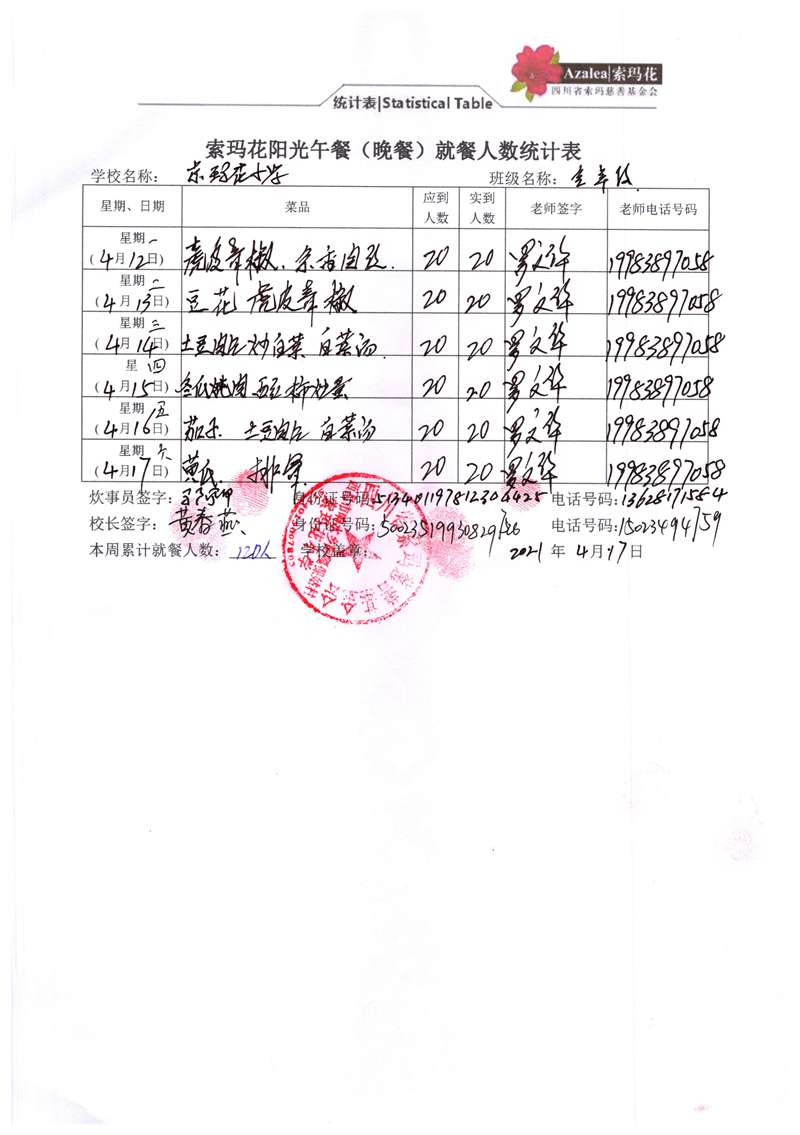 Azalea|索玛花
四川省索玛慈善基金会
统计表|Statistical Table
索玛花阳光午餐（晚餐）就餐人数统计表
学校名称： 索玛花小学 班级名称：全年级
星期、日期 菜品 应到人数 实到人数 老师签字 老师电话号码
星期一
(4月12日) 虎皮青椒、 20 20 罗文华 19983897058
星期二
(4月13日) 豆花 虎皮青椒 20 20 罗文华 19983897058
星期三
(4月14日) 土豆肉片 炒白菜 白菜汤 20 20 罗文华 19983897058
星 四
(4月15日) 冬瓜炖肉 西红柿炒蛋 20 20 罗文华 19983897058
星期五
(4月16日) 茄子 土豆肉片 白菜汤 20 20 罗文华 19983897058
星期六
(4月17日) 黄瓜 排骨 20 20 罗文华 19983897058
炊事员签字： 身份证号码：513401197812306425 电话号码：13628171584
校长签字：黄春燕 身份证号码：500235199308291726 电话号码：15023494759
本周累计就餐人数：120人 学校盖章： 2021年4月17日